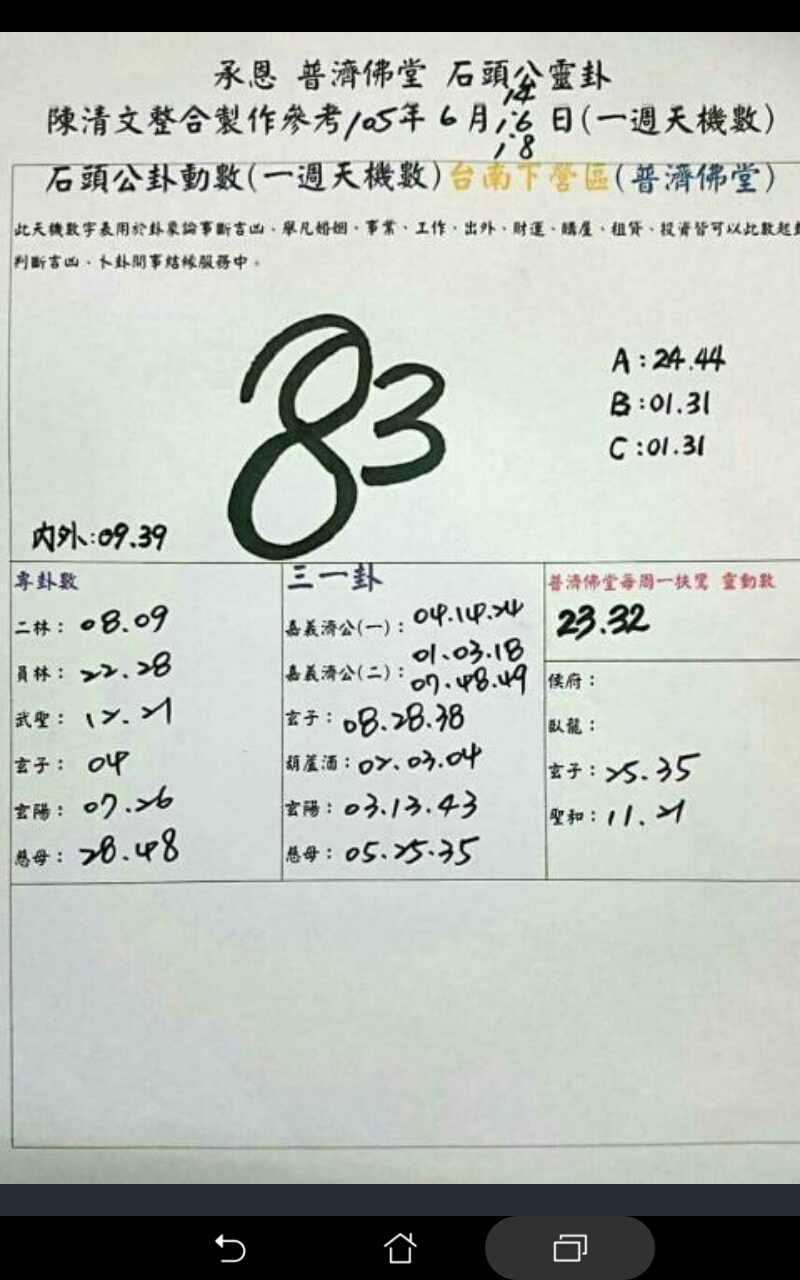 承恩 普濟佛堂 石頭公靈卦
14
陳清文整合製作參考105年6月16日(一週天機數)
18
石頭公卦動數(一週天機數)台南下營區(普濟佛堂)
此天機數字表用於卦象論事斷吉凶、舉凡婚姻、事業、工作、出外、財運、購屋、租貸、投資皆可以此數起卦
判斷吉凶、卜卦問事結緣服務中。
83
A:24.44
B:01.31
C:01.31
內外:09.39
專卦數
二林：08.09
員林：22.28
武聖：12.21
玄子：04
玄陽：07.26
慈母：28.48
三一卦
嘉義濟公(一)：04.14.24
嘉義濟公(二)：01.03.18
07.48.49
玄子：08.28.38
葫蘆酒：02.03.04
玄陽：03.13.43
慈母：05.25.35
普濟佛堂每周一扶鸞 靈動數
23.32
侯府：
臥龍：
玄子：25.35
聖和：11.21